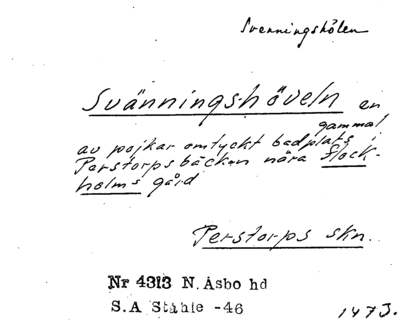 Svenningshölen
Svänningshöveln en
gammal
av pojkar omtyckt badplats i
Perstorpsbäcken nära Stock-
holms gård
Perstorps skn.
Nr 4313 N. Åsbo hd
S.A Ståhle -46
1473.